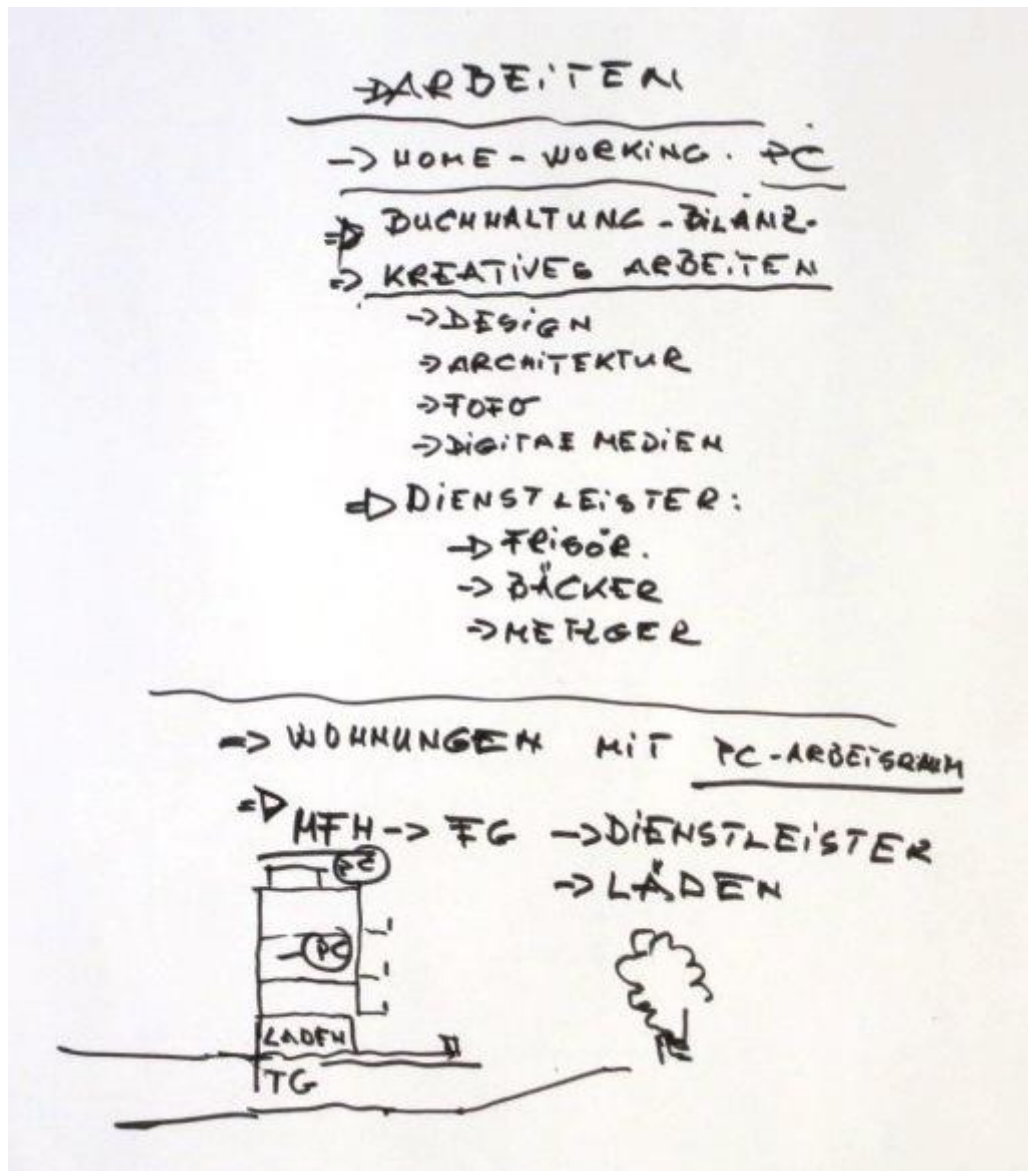 → ARBEITEN
→ HOME-WORKING. PC
⇒ BUCHHALTUNG - BILANZ.
⇒ KREATIVES ARBEITEN
→ DESIGN
→ ARCHITEKTUR
→ FOFO
→ DIGITAE MEDIEN
⇒ DIENSTLEISTER:
→ FRISÖR.
→ BÄCKER
→ METZGER
⇒ WOHNUNGEN MIT PC-ARBEISRAUM
⇒ MFH → EG → DIENSTLEISTER
→ LÄDEN
PC
PC
LADEN
TG